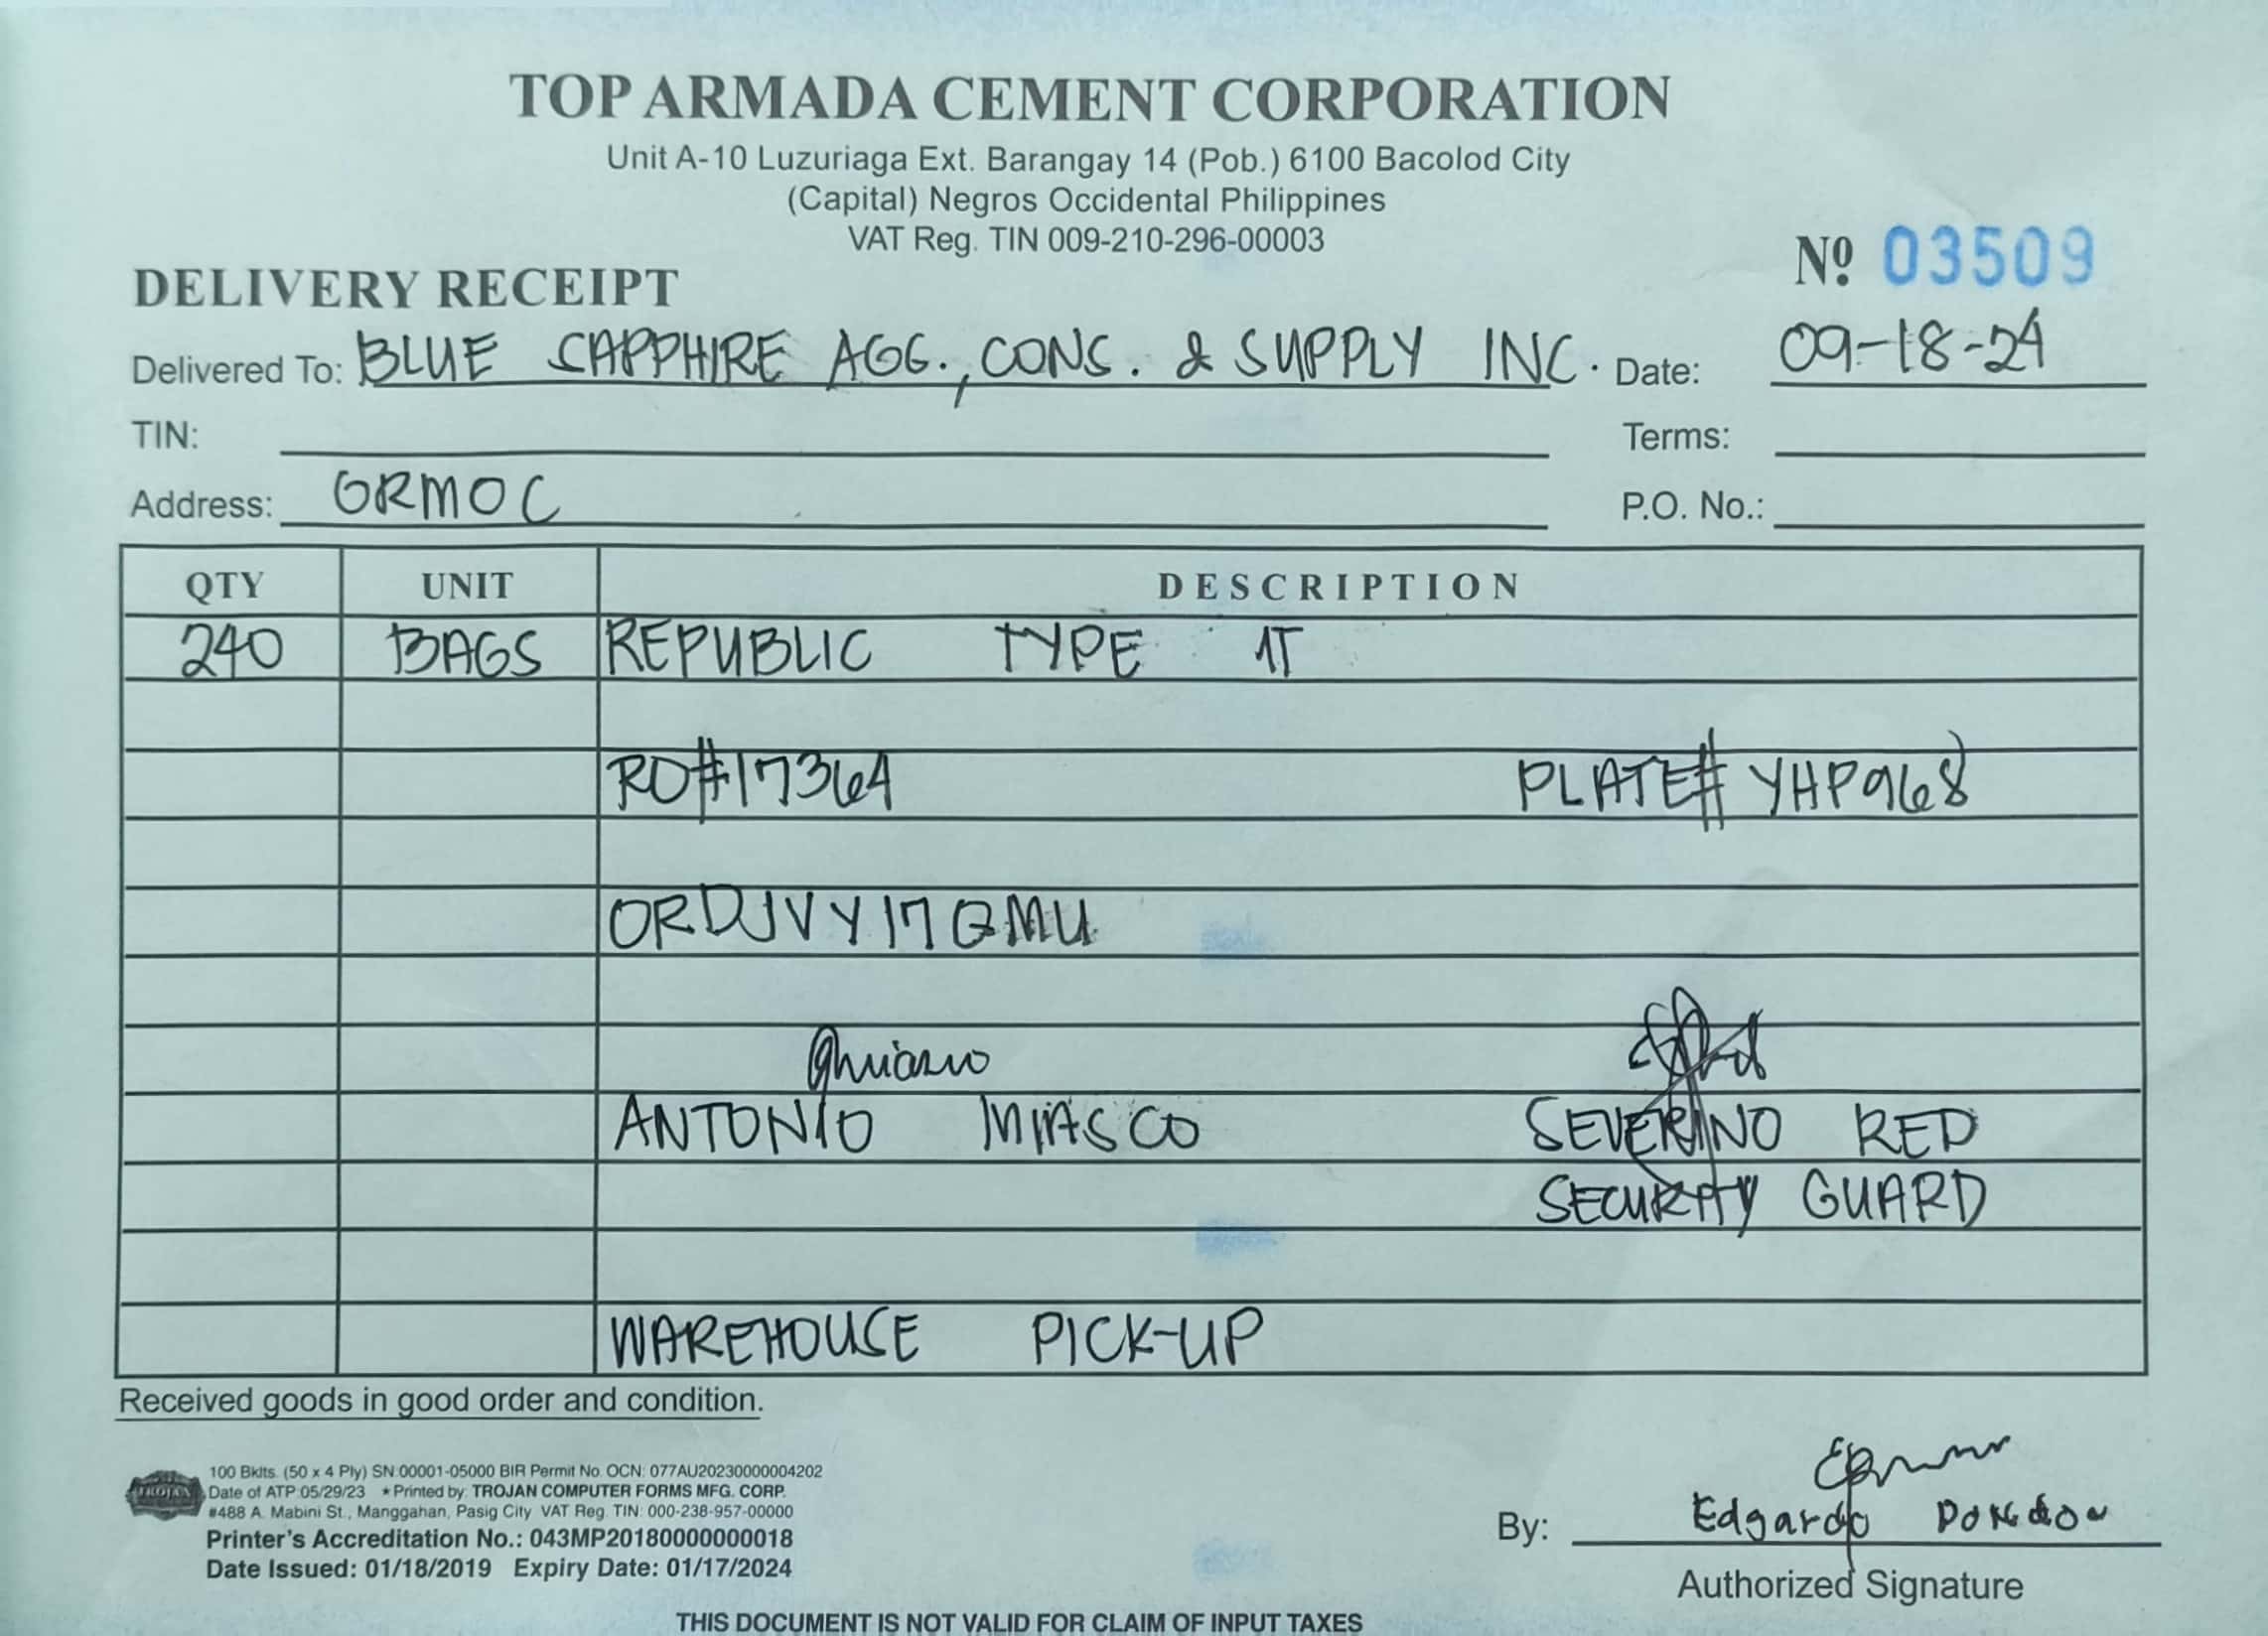 TOP ARMADA CEMENT CORPORATION
Unit A-10 Luzuriaga Ext. Barangay 14 (Pob.) 6100 Bacolod City
(Capital) Negros Occidental Philippines
VAT Reg. TIN 009-210-296-00003
Nº 03509
DELIVERY RECEIPT
Delivered To: BLUE SAPPHIRE AGG., CONS. & SUPPLY INC. Date: 09-18-24
TIN: Terms:
Address: ORMOC P.O. No.:
QTY UNIT DESCRIPTION
240 BAGS REPUBLIC TYPE 1T
RO#17364 PLATE# YHP968
ORDJVY17QMU
ANTONIO MIASCO SEVERINO RED
SECURITY GUARD
WAREHOUSE PICK-UP
Received goods in good order and condition.
TROJAN
100 Bklts. (50 x 4 Ply) SN 00001-05000 BIR Permit No. OCN: 077AU20230000004202
Date of ATP 05/29/23 ★ Printed by: TROJAN COMPUTER FORMS MFG. CORP.
#488 A. Mabini St., Manggahan, Pasig City VAT Reg. TIN: 000-238-957-00000
Printer's Accreditation No.: 043MP20180000000018
Date Issued: 01/18/2019 Expiry Date: 01/17/2024
By: Edgardo
Authorized Signature
THIS DOCUMENT IS NOT VALID FOR CLAIM OF INPUT TAXES